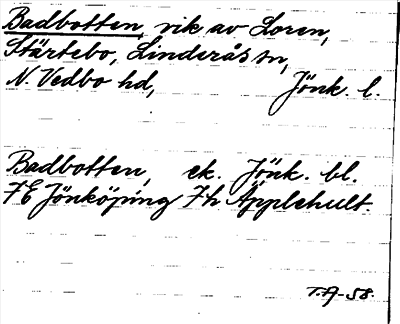 Badbotten, vik av Loren,
Stärtebo, Linderås sn,
N. Vedbo hd, Jönk. l.
Badbotten, ek. Jönk. bl.
7E Jönköping 7h Äpplehult.
T.A-58.